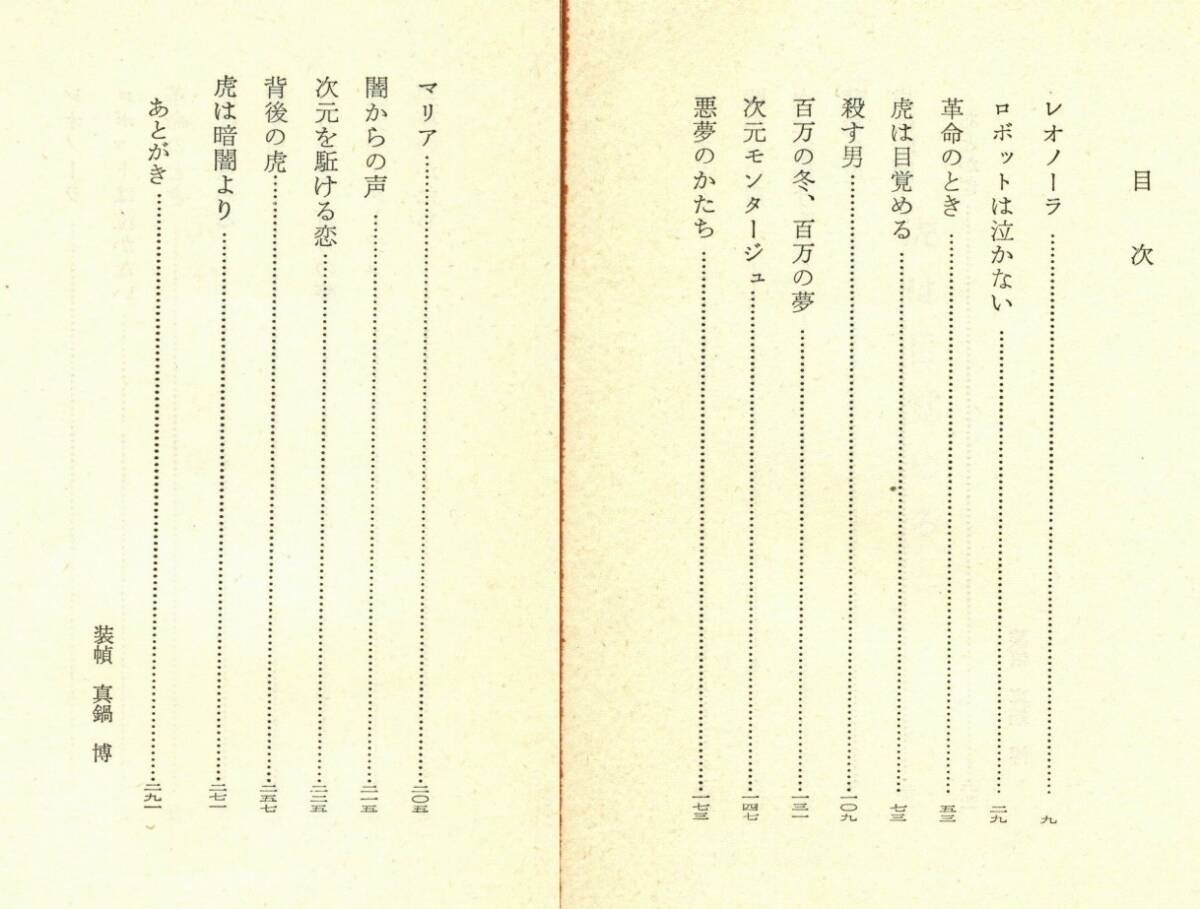 目次
レオノーラ…………九
ロボットは泣かない…………二九
革命のとき…………五三
虎は目覚める…………七三
殺す男…………一〇九
百万の冬、百万の夢…………一三一
次元モンタージュ…………一四七
悪夢のかたち…………一七三
マリア…………二〇五
闇からの声…………二一五
次元を駈ける恋…………二二五
背後の虎…………二五七
虎は暗闇より…………二七一
あとがき…………二九一
装幀 真鍋 博